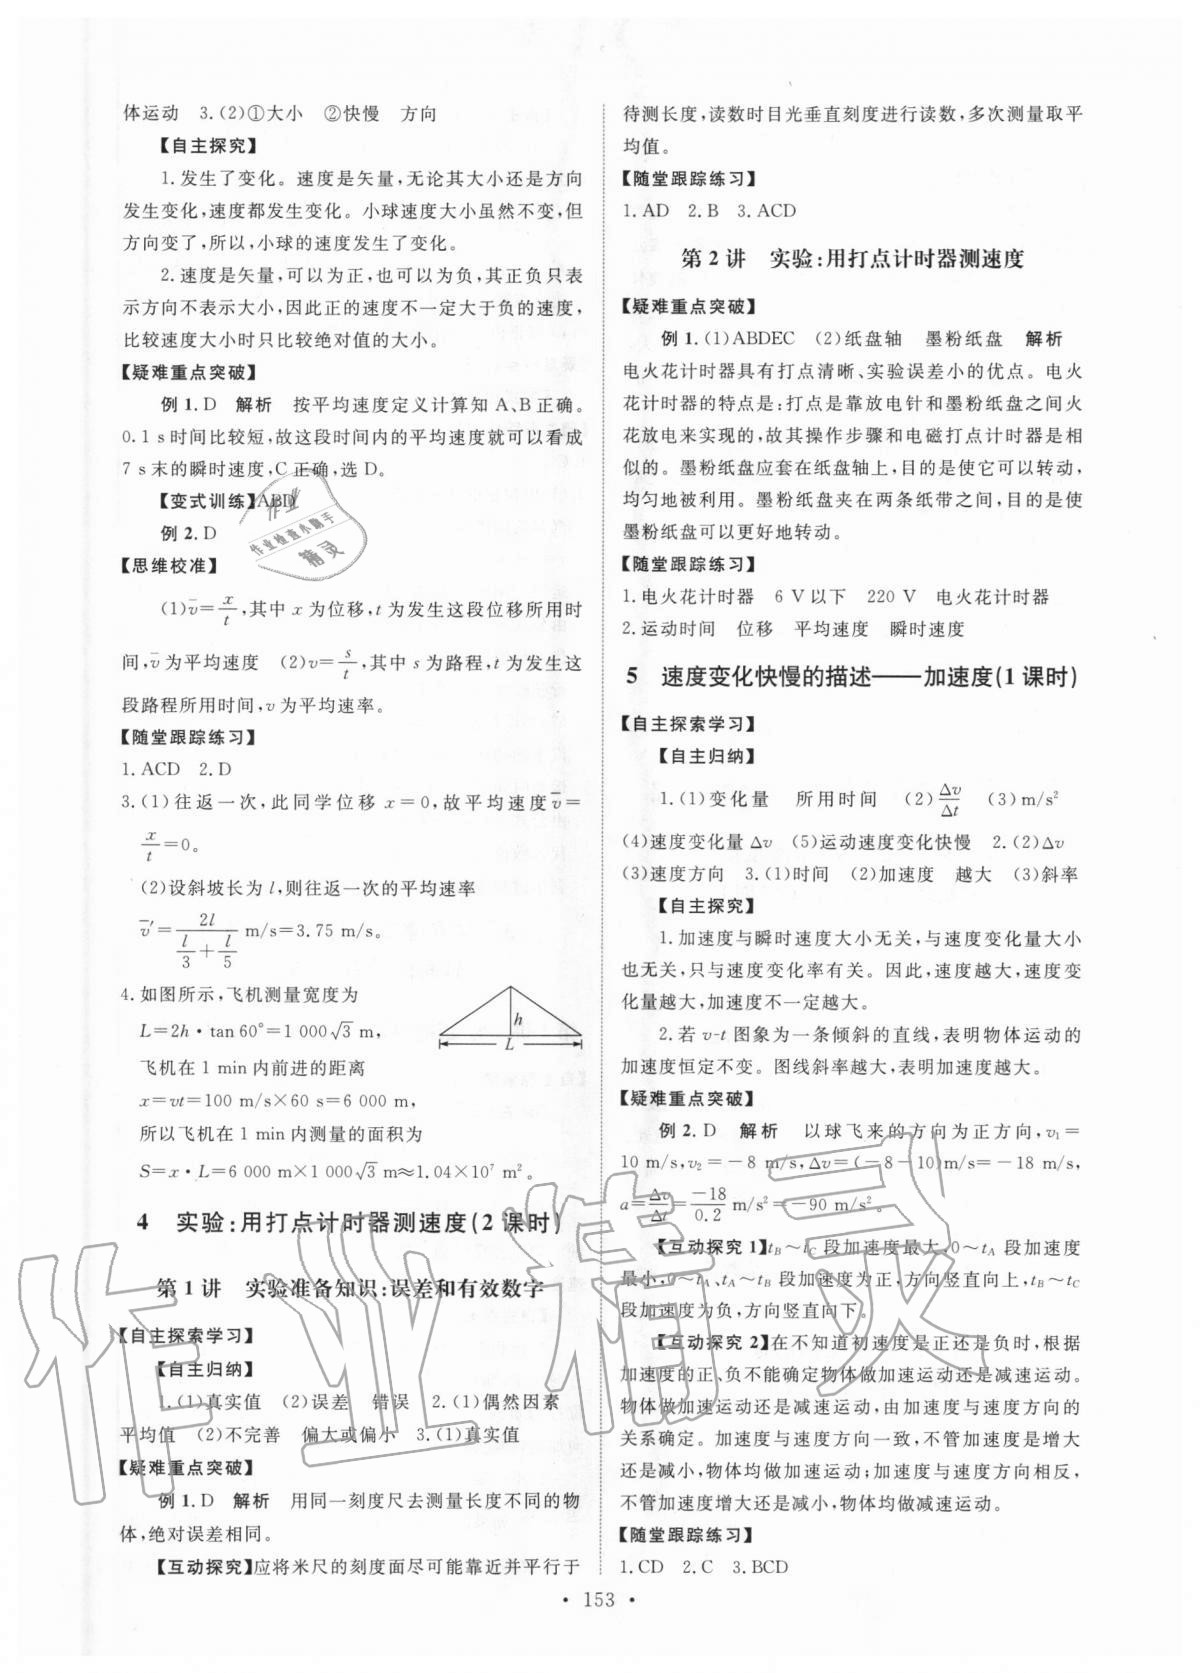 体运动　3.(2)①大小　②快慢　方向
【自主探究】
1.发生了变化。速度是矢量,无论其大小还是方向
发生变化,速度都发生变化。小球速度大小虽然不变,但
方向变了,所以,小球的速度发生了变化。
2.速度是矢量,可以为正,也可以为负,其正负只表
示方向不表示大小,因此正的速度不一定大于负的速度,
比较速度大小时只比较绝对值的大小。
【疑难重点突破】
例 1.D　解析　按平均速度定义计算知 A、B正确。
0.1 s时间比较短,故这段时间内的平均速度就可以看成
7 s末的瞬时速度,C正确,选 D。
【变式训练】ABD
例 2.D
【思维校准】
(1)v̄=x/t,其中 x 为位移,t 为发生这段位移所用时
间,v̄为平均速度　(2)v=s/t,其中 s为路程,t为发生这
段路程所用时间,v为平均速率。
【随堂跟踪练习】
1.ACD　2.D
3.(1)往返一次,此同学位移 x=0,故平均速度v̄=
x/t=0。
(2)设斜坡长为 l,则往返一次的平均速率
v̄′=2l/(l/3+l/5) m/s=3.75 m/s。
4.如图所示,飞机测量宽度为
L=2h·tan 60°=1 000√3 m,
飞机在 1 min内前进的距离
x=vt=100 m/s×60 s=6 000 m,
所以飞机在 1 min内测量的面积为
S=x·L=6 000 m×1 000√3 m≈1.04×10⁷ m²。
h
L
4　实验:用打点计时器测速度(2课时)
第 1 讲　实验准备知识:误差和有效数字
【自主探索学习】
【自主归纳】
1.(1)真实值　(2)误差　错误　2.(1)偶然因素
平均值　(2)不完善　偏大或偏小　3.(1)真实值
【疑难重点突破】
例 1.D　解析　用同一刻度尺去测量长度不同的物
体,绝对误差相同。
【互动探究】应将米尺的刻度面尽可能靠近并平行于
待测长度,读数时目光垂直刻度进行读数,多次测量取平
均值。
【随堂跟踪练习】
1.AD　2.B　3.ACD
第 2 讲　实验:用打点计时器测速度
【疑难重点突破】
例 1.(1)ABDEC　(2)纸盘轴　墨粉纸盘　解析
电火花计时器具有打点清晰、实验误差小的优点。电火
花计时器的特点是:打点是靠放电针和墨粉纸盘之间火
花放电来实现的,故其操作步骤和电磁打点计时器是相
似的。墨粉纸盘应套在纸盘轴上,目的是使它可以转动,
均匀地被利用。墨粉纸盘夹在两条纸带之间,目的是使
墨粉纸盘可以更好地转动。
【随堂跟踪练习】
1.电火花计时器　6 V以下　220 V　电火花计时器
2.运动时间　位移　平均速度　瞬时速度
5　速度变化快慢的描述——加速度(1课时)
【自主探索学习】
【自主归纳】
1.(1)变化量　所用时间　(2)Δv/Δt　(3)m/s²
(4)速度变化量 Δv　(5)运动速度变化快慢　2.(2)Δv
(3)速度方向　3.(1)时间　(2)加速度　越大　(3)斜率
【自主探究】
1.加速度与瞬时速度大小无关,与速度变化量大小
也无关,只与速度变化率有关。因此,速度越大,速度变
化量越大,加速度不一定越大。
2.若 v-t 图象为一条倾斜的直线,表明物体运动的
加速度恒定不变。图线斜率越大,表明加速度越大。
【疑难重点突破】
例 2.D　解析　以球飞来的方向为正方向,v₁=
10 m/s,v₂=-8 m/s,Δv=(-8-10)m/s=-18 m/s,
a=Δv/Δt=-18/0.2 m/s²=-90 m/s²。
【互动探究 1】t_B～t_C 段加速度最大,0～t_A 段加速度
最小,0～t_A、t_A～t_B 段加速度为正,方向竖直向上,t_B～t_C
段加速度为负,方向竖直向下。
【互动探究 2】在不知道初速度是正还是负时,根据
加速度的正、负不能确定物体做加速运动还是减速运动。
物体做加速运动还是减速运动,由加速度与速度方向的
关系确定。加速度与速度方向一致,不管加速度是增大
还是减小,物体均做加速运动;加速度与速度方向相反,
不管加速度增大还是减小,物体均做减速运动。
【随堂跟踪练习】
1.CD　2.C　3.BCD
· 153 ·
作业
作业检查小助手
精灵
作业精灵